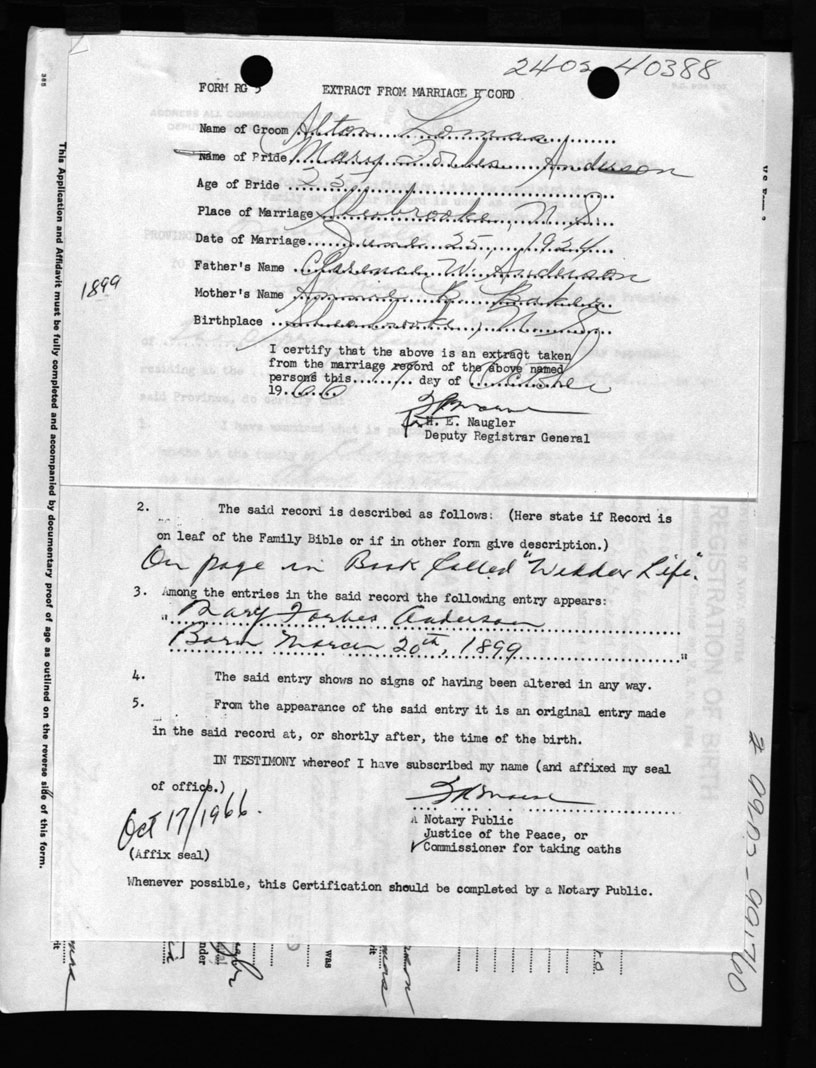 2402 40388
FORM RG 5 EXTRACT FROM MARRIAGE RECORD
Name of Groom Alton Lomas
Name of Pride Mary Forbes Anderson
Age of Bride 25
Place of Marriage Sherbrooke, N.S.
Date of Marriage June 25, 1924
Father's Name Clarence W. Anderson
1899
Mother's Name Annie B. Baker
Birthplace Sherbrooke, N.S.
I certify that the above is an extract taken
from the marriage report of the above named
persons this 17 day of October
1966
for H. E. Naugler
Deputy Registrar General
2. The said record is described as follows: (Here state if Record is
on leaf of the Family Bible or if in other form give description.)
On page in Book Called "Wedded Life".
3. Among the entries in the said record the following entry appears:
" Mary Forbes Anderson
Born March 20th, 1899 "
4. The said entry shows no signs of having been altered in any way.
5. From the appearance of the said entry it is an original entry made
in the said record at, or shortly after, the time of the birth.
IN TESTIMONY whereof I have subscribed my name (and affixed my seal
of office.)
Oct 17/1966.
A Notary Public
Justice of the Peace, or
Commissioner for taking oaths
(Affix seal)
Whenever possible, this Certification should be completed by a Notary Public.
This Application and Affidavit must be fully completed and accompanied by documentary proof of age as outlined on the reverse side of this form.
REGISTRATION OF BIRTH
was